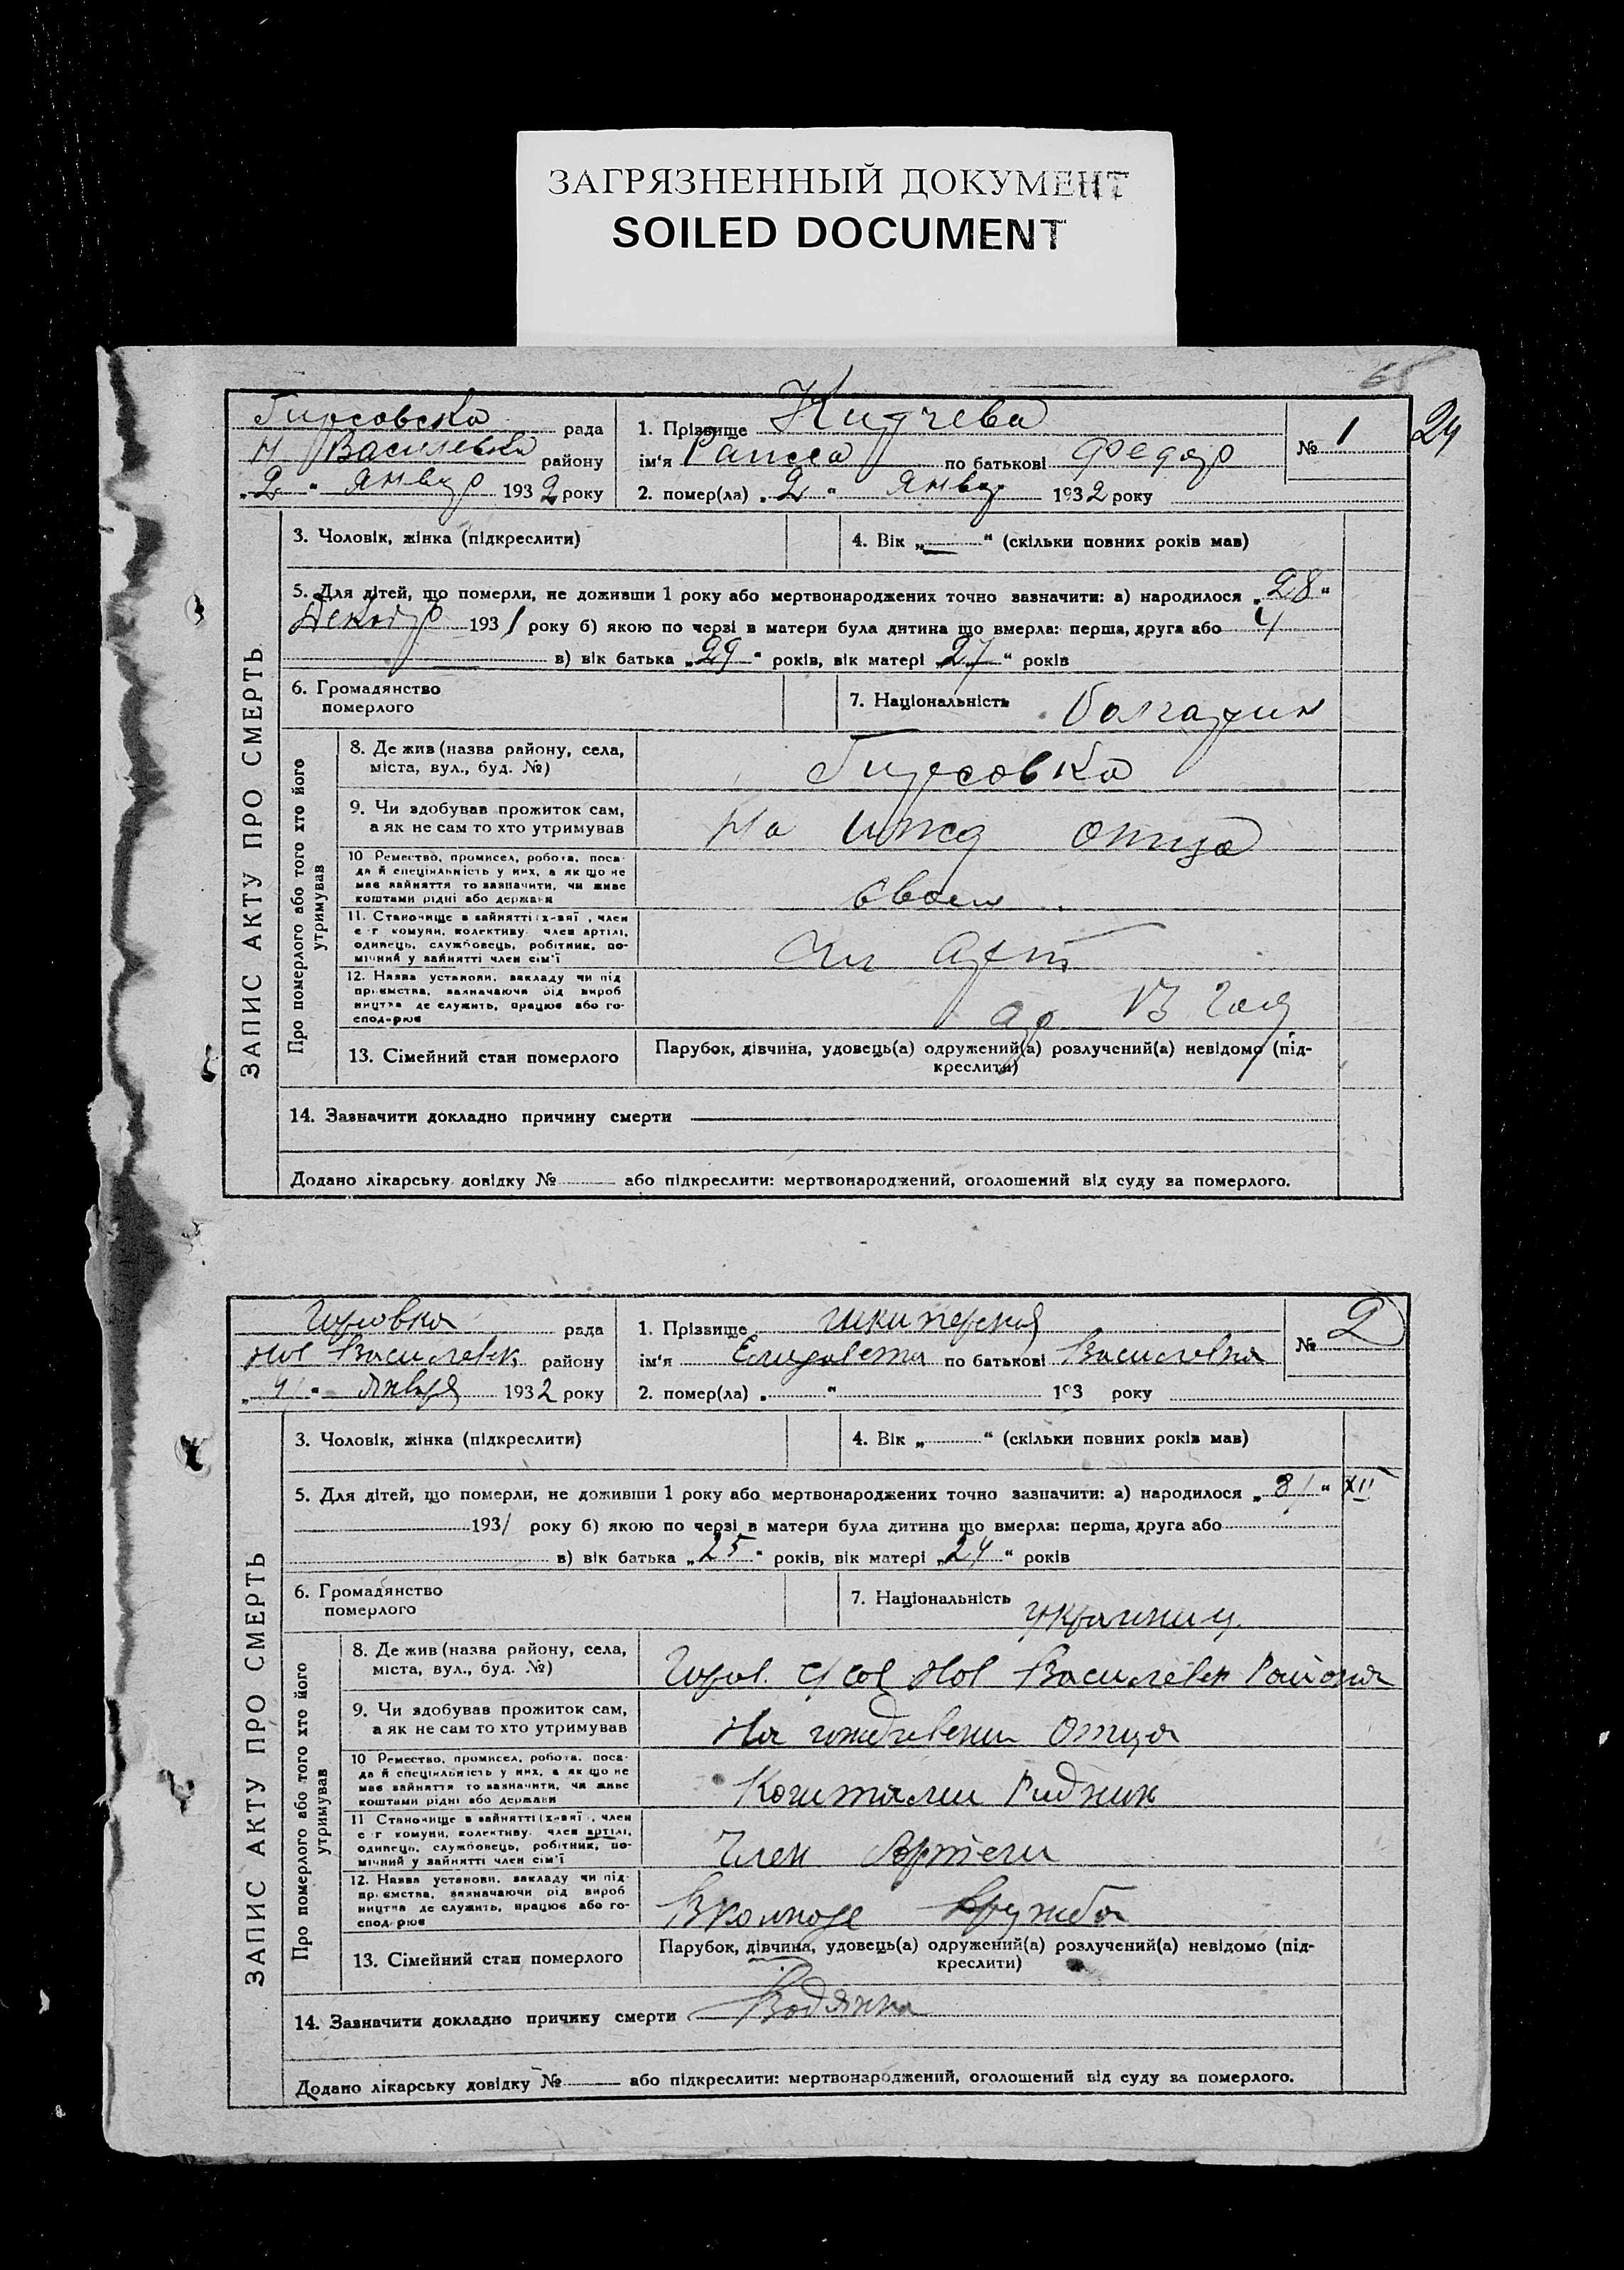 ЗАГРЯЗНЕННЫЙ ДОКУМЕНТ
SOILED DOCUMENT
24
Гирсовска рада
Н Василевка району
„2“ Январ 1932 року
1. Прізвище
ім'я Раиса по батькові Федор
2. помер(ла) „2“ Январ 1932 року
№ 1
ЗАПИС АКТУ ПРО СМЕРТЬ
3. Чоловік, жінка (підкреслити)
4. Вік „—“ (скільки повних років мав)
5. Для дітей, що померли, не доживши 1 року або мертвонароджених точно зазначити: а) народилося „28“
Декабр 1931 року б) якою по черзі в матери була дитина що вмерла: перша, друга або 4
в) вік батька „29“ років, вік матері „27“ років
6. Громадянство
померлого
7. Національність Болгарин
Про померлого або того хто його
утримував
8. Де жив (назва району, села,
міста, вул., буд. №)
Гирсовка
9. Чи здобував прожиток сам,
а як не сам то хто утримував
На ижд отца
10 Ремество, промисел, робота, поса-
да й спеціяльність у них, а як що не
має зайняття то зазначити, чи живе
коштами рідні або держави
11. Становище в зайнятті (х-вяї, член
с-г комуни, колективу, член артілі,
одинець, службовець, робітник, по-
мічний у зайнятті член сім'ї
Чл Арт
12. Назва установи, закладу чи під-
приємства, зазначаючи рід вироб-
ництва де служить, працює або го-
сподарює
13. Сімейний стан померлого
Парубок, дівчина, удовець(а) одружений(а) розлучений(а) невідомо (під-
креслити)
14. Зазначити докладно причину смерти
Додано лікарську довідку № або підкреслити: мертвонароджений, оголошений від суду за померлого.
рада
Нов Василевк району
„4“ Января 1932 року
1. Прізвище
ім'я Елизавета по батькові Василовна
2. помер(ла) „ “ 193 року
№ 2
ЗАПИС АКТУ ПРО СМЕРТЬ
3. Чоловік, жінка (підкреслити)
4. Вік „ “ (скільки повних років мав)
5. Для дітей, що померли, не доживши 1 року або мертвонароджених точно зазначити: а) народилося „31“ XII
1931 року б) якою по черзі в матери була дитина що вмерла: перша, друга або
в) вік батька „25“ років, вік матері „24“ років
6. Громадянство
померлого
7. Національність Украиниц
Про померлого або того хто його
утримував
8. Де жив (назва району, села,
міста, вул., буд. №)
Нов Василевк Района
9. Чи здобував прожиток сам,
а як не сам то хто утримував
На Отца
10 Ремество, промисел, робота, поса-
да й спеціяльність у них, а як що не
має зайняття то зазначити, чи живе
коштами рідні або держави
Коштами
11 Становище в зайнятті (х-вяї, член
с-г комуни, колективу, член артілі,
одинець, службовець, робітник, по-
мічний у зайнятті член сім'ї
Член Артели
12. Назва установи, закладу чи під-
приємства, зазначаючи рід вироб-
ництва де служить, працює або го-
сподарює
Дружба
13. Сімейний стан померлого
Парубок, дівчина, удовець(а) одружений(а) розлучений(а) невідомо (під-
креслити)
14. Зазначити докладно причину смерти Водянка
Додано лікарську довідку № або підкреслити: мертвонароджений, оголошений від суду за померлого.